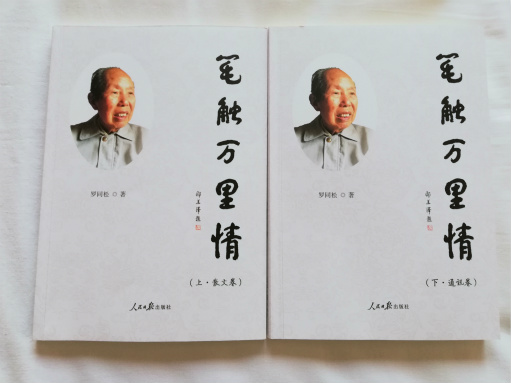 笔触万里情
(上·散文卷)
罗同松 ◎ 著
人民日报出版社
笔触万里情
(下·通讯卷)
罗同松 ◎ 著
人民日报出版社